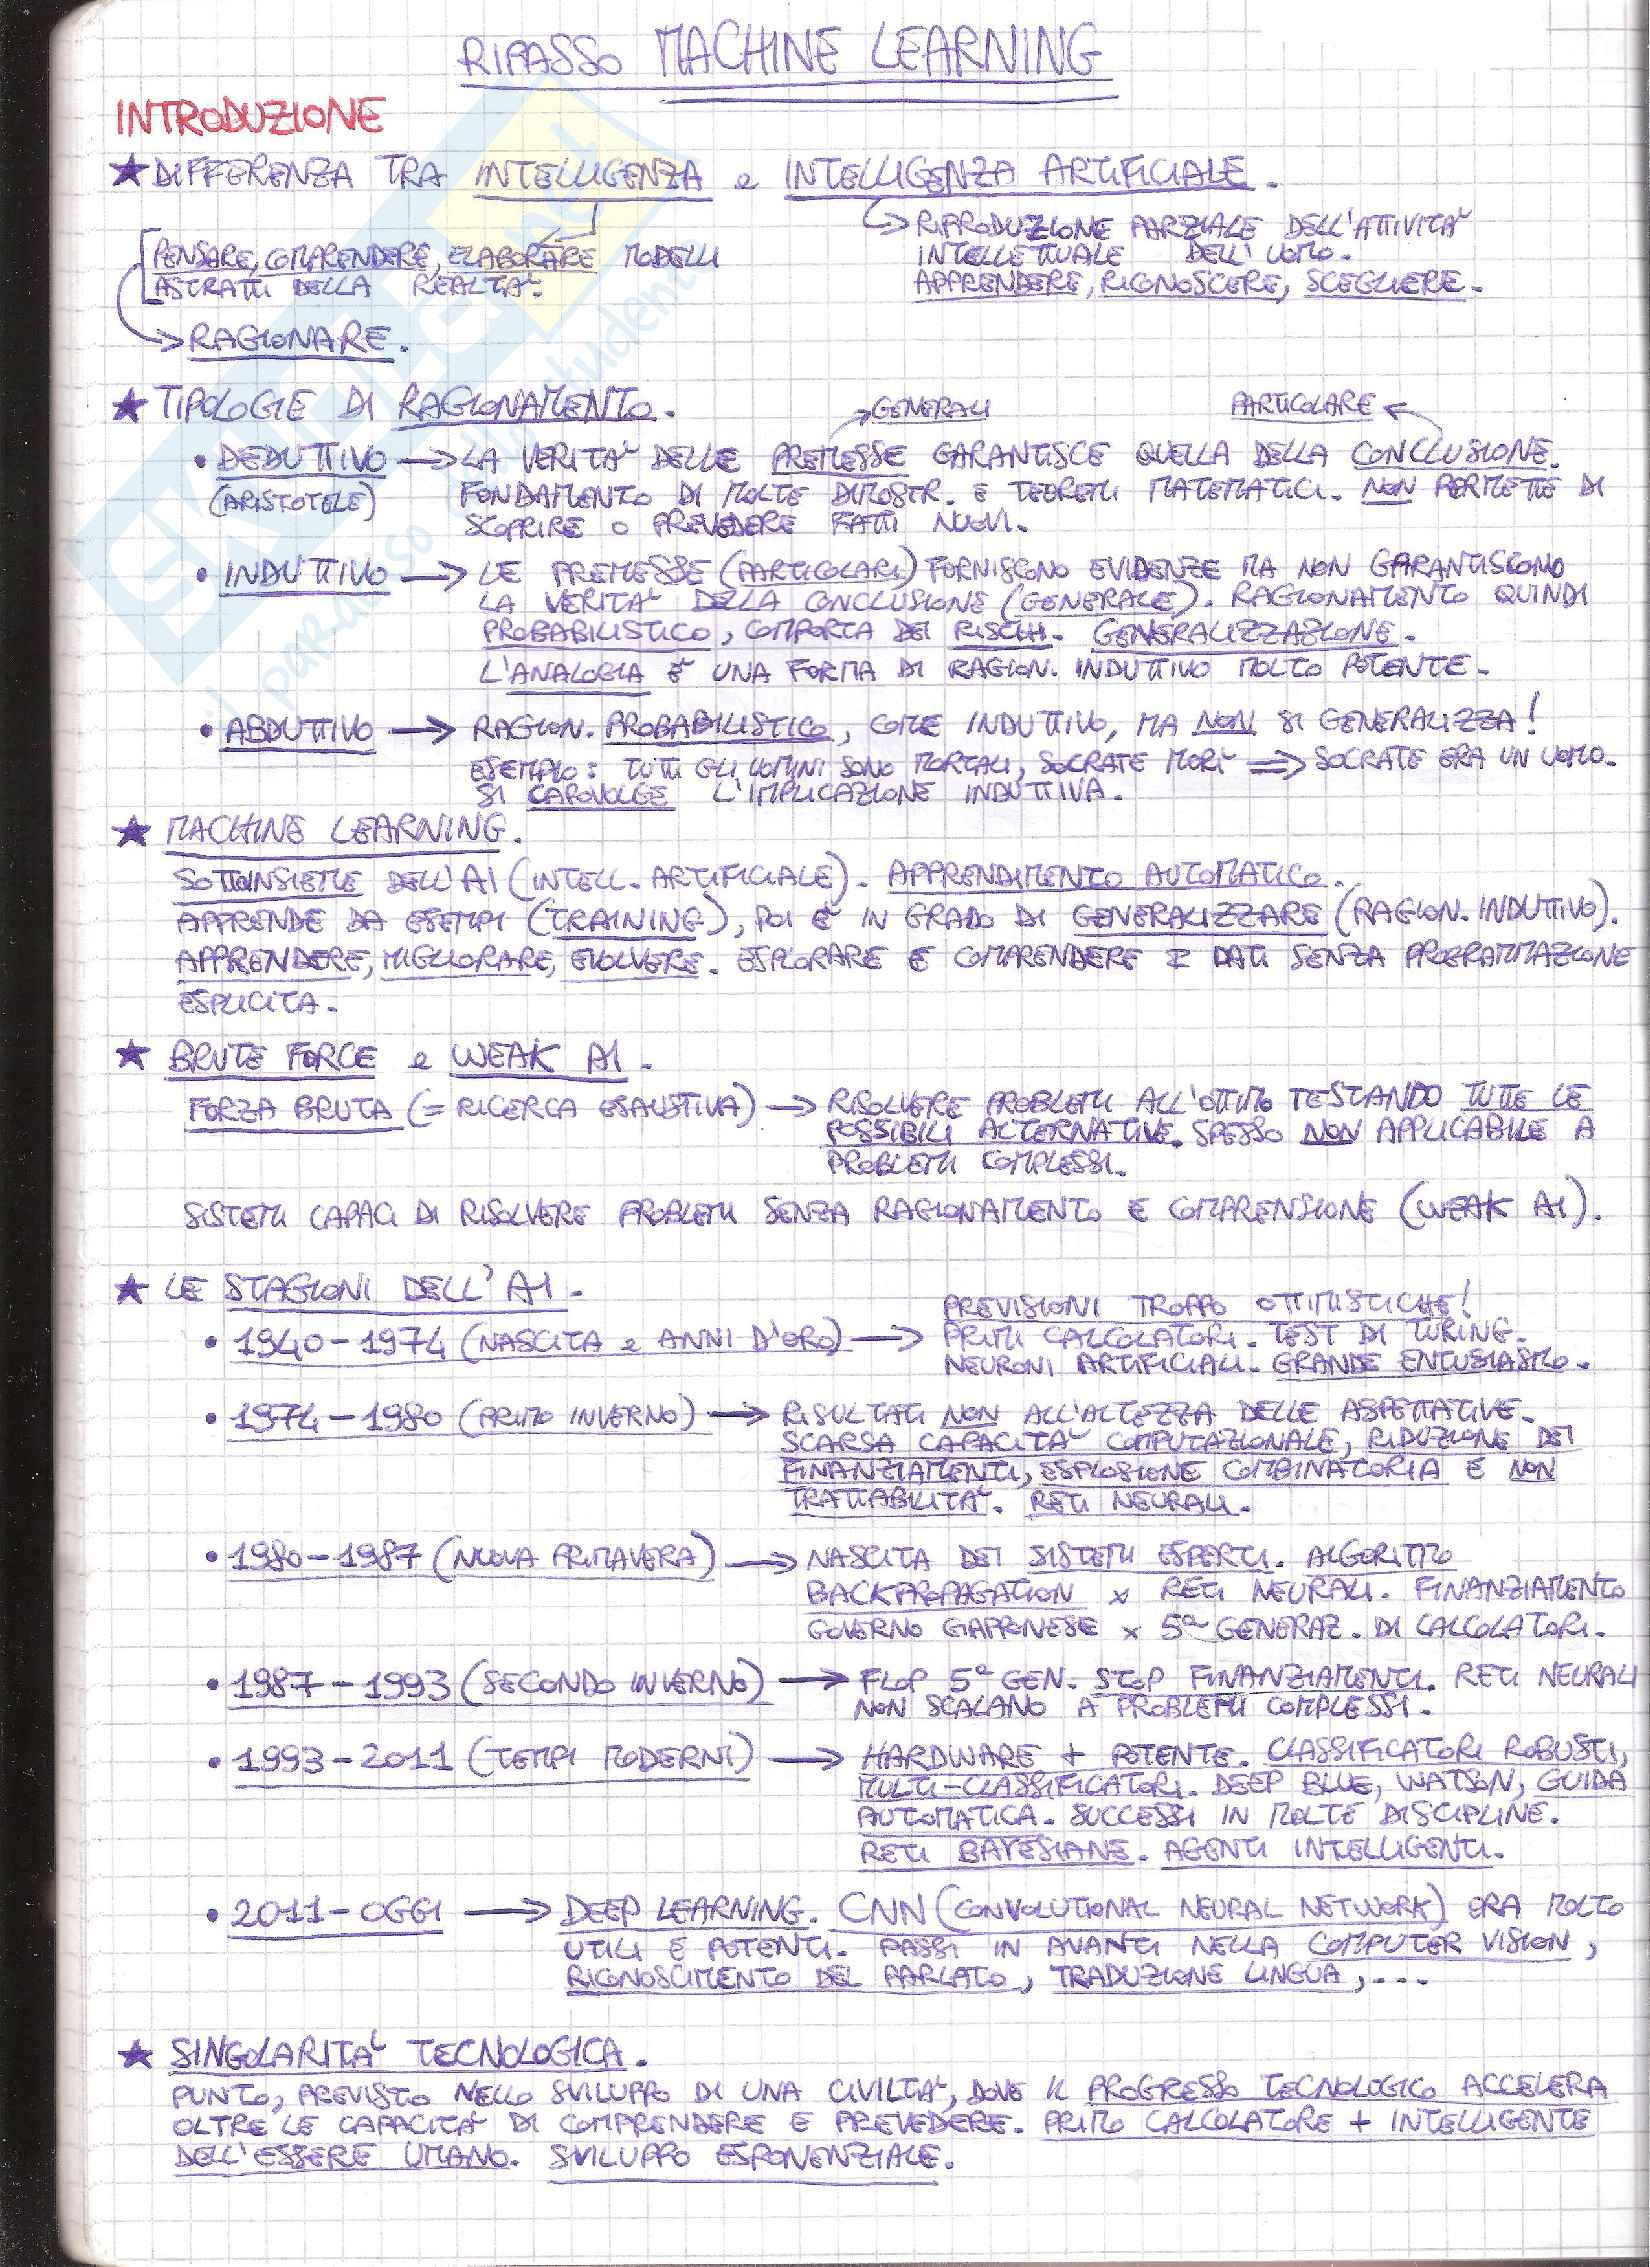 RIPASSO MACHINE LEARNING
INTRODUZIONE
★ DIFFERENZA TRA INTELLIGENZA e INTELLIGENZA ARTIFICIALE.
→ RIPRODUZIONE PARZIALE DELL'ATTIVITA'
INTELLETTUALE DELL'UOMO.
APPRENDERE, RICONOSCERE, SCEGLIERE.
PENSARE, COMPRENDERE, ELABORARE MODELLI
ASTRATTI DELLA REALTA'.
→ RAGIONARE.
★ TIPOLOGIE DI RAGIONAMENTO.
→ GENERALI PARTICOLARE ←
• DEDUTTIVO → LA VERITA' DELLE PREMESSE GARANTISCE QUELLA DELLA CONCLUSIONE.
(ARISTOTELE) FONDAMENTO DI MOLTE DIMOSTR. E TEOREMI MATEMATICI. NON PERMETTE DI
SCOPRIRE O PREVEDERE FATTI NUOVI.
• INDUTTIVO → LE PREMESSE (PARTICOLARI) FORNISCONO EVIDENZE MA NON GARANTISCONO
LA VERITA' DELLA CONCLUSIONE (GENERALE). RAGIONAMENTO QUINDI
PROBABILISTICO, COMPORTA DEI RISCHI. GENERALIZZAZIONE.
L'ANALOGIA E' UNA FORMA DI RAGION. INDUTTIVO MOLTO POTENTE.
• ABDUTTIVO → RAGION. PROBABILISTICO, COME INDUTTIVO, MA NON SI GENERALIZZA!
ESEMPIO: TUTTI GLI UOMINI SONO MORTALI, SOCRATE MORI' ⇒ SOCRATE ERA UN UOMO.
SI CAPOVOLGE L'IMPLICAZIONE INDUTTIVA.
★ MACHINE LEARNING.
SOTTOINSIEME DELL'AI (INTELL. ARTIFICIALE). APPRENDIMENTO AUTOMATICO.
APPRENDE DA ESEMPI (TRAINING), POI E' IN GRADO DI GENERALIZZARE (RAGION. INDUTTIVO).
APPRENDERE, MIGLIORARE, EVOLVERE. ESPLORARE E COMPRENDERE I DATI SENZA PROGRAMMAZIONE
ESPLICITA.
★ BRUTE FORCE e WEAK AI.
FORZA BRUTA (= RICERCA ESAUSTIVA) → RISOLVERE PROBLEMI ALL'OTTIMO TESTANDO TUTTE LE
POSSIBILI ALTERNATIVE. SPESSO NON APPLICABILE A
PROBLEMI COMPLESSI.
SISTEMI CAPACI DI RISOLVERE PROBLEMI SENZA RAGIONAMENTO E COMPRENSIONE (WEAK AI).
★ LE STAGIONI DELL'AI.
PREVISIONI TROPPO OTTIMISTICHE!
• 1940-1974 (NASCITA e ANNI D'ORO) → PRIMI CALCOLATORI. TEST DI TURING.
NEURONI ARTIFICIALI. GRANDE ENTUSIASMO.
• 1974-1980 (PRIMO INVERNO) → RISULTATI NON ALL'ALTEZZA DELLE ASPETTATIVE.
SCARSA CAPACITA' COMPUTAZIONALE, RIDUZIONE DEI
FINANZIAMENTI, ESPLOSIONE COMBINATORIA E NON
TRATTABILITA'. RETI NEURALI.
• 1980-1987 (NUOVA PRIMAVERA) → NASCITA DEI SISTEMI ESPERTI. ALGORITMO
BACKPROPAGATION x RETI NEURALI. FINANZIAMENTO
GOVERNO GIAPPONESE x 5ª GENERAZ. DI CALCOLATORI.
• 1987-1993 (SECONDO INVERNO) → FLOP 5ª GEN. STOP FINANZIAMENTI. RETI NEURALI
NON SCALANO A PROBLEMI COMPLESSI.
• 1993-2011 (TEMPI MODERNI) → HARDWARE + POTENTE. CLASSIFICATORI ROBUSTI,
MULTI-CLASSIFICATORI. DEEP BLUE, WATSON, GUIDA
AUTOMATICA. SUCCESSI IN MOLTE DISCIPLINE.
RETI BAYESIANE. AGENTI INTELLIGENTI.
• 2011-OGGI → DEEP LEARNING. CNN (CONVOLUTIONAL NEURAL NETWORK) ORA MOLTO
UTILI E POTENTI. PASSI IN AVANTI NELLA COMPUTER VISION,
RICONOSCIMENTO DEL PARLATO, TRADUZIONE LINGUA, ...
★ SINGOLARITA' TECNOLOGICA.
PUNTO, PREVISTO NELLO SVILUPPO DI UNA CIVILTA', DOVE IL PROGRESSO TECNOLOGICO ACCELERA
OLTRE LE CAPACITA' DI COMPRENDERE E PREVEDERE. PRIMO CALCOLATORE + INTELLIGENTE
DELL'ESSERE UMANO. SVILUPPO ESPONENZIALE.
SKUOLA.net
il paradiso dello studente